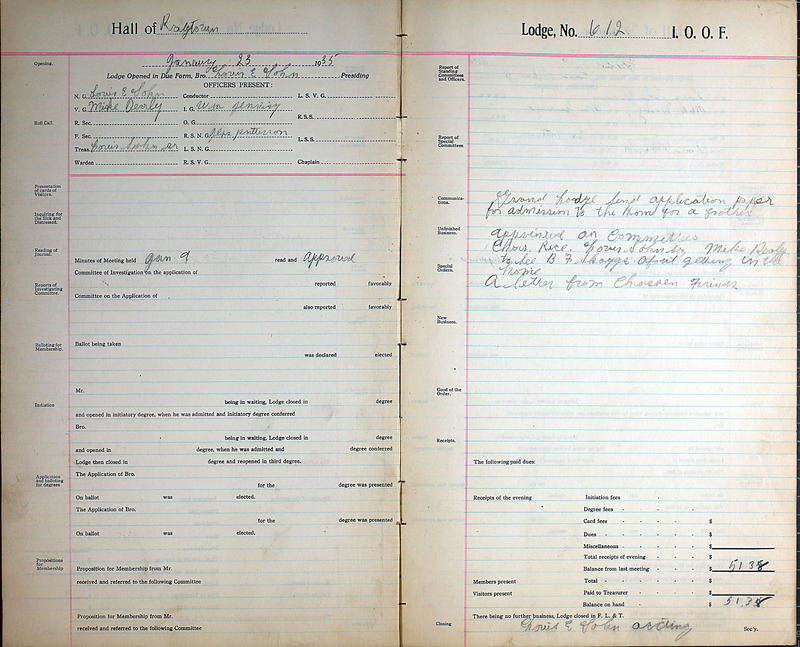 Hall of Raytown Lodge, No. 612 I. O. O. F.
Opening. January 23 1935
Lodge Opened in Due Form, Bro. Louis E John Presiding
OFFICERS PRESENT:
Roll Call.
N. G. Louis E John Conductor L. S. V. G.
V. G. Mike Dealy I. G. Wm R. S. S.
R. Sec. O. G.
F. Sec. R. S. N. G. patterson L. S. S.
Treas. Louis John sr L. S. N. G.
Warden R. S. V. G. Chaplain
Presentation of cards of Visitors.
Inquiring for the Sick and Distressed.
Reading of Journal.
Minutes of Meeting held Jan 9 read and Approved
Committee of Investigation on the application of
Reports of Investigating Committee.
reported favorably
Committee on the Application of
also reported favorably
Balloting for Membership.
Ballot being taken
was declared elected
Mr.
Initiation
being in waiting, Lodge closed in degree
and opened in initiatory degree, when he was admitted and initiatory degree conferred
Bro.
being in waiting, Lodge closed in degree
and opened in degree, when he was admitted and degree conferred
Lodge then closed in degree and reopened in third degree.
Application and balloting for degrees
The Application of Bro.
for the degree was presented
On ballot was elected.
The Application of Bro.
for the degree was presented
On ballot was elected.
Propositions for Membership
Proposition for Membership from Mr.
received and referred to the following Committee
Proposition for Membership from Mr.
received and referred to the following Committee
Report of Standing Committees and Officers.
Report of Special Committees
Communications.
Grand Lodge send application paper
for admission to the home for a brother
Unfinished Business.
appointed on Committee
Chas. Rice. Louis John sr Mike Dealy
Special Orders.
to see B F about getting in the
home
A letter from
New Business.
Good of the Order.
Receipts.
The following paid dues:
Receipts of the evening Initiation fees
Degree fees
Card fees $
Dues $
Miscellaneous $
Total receipts of evening $
Balance from last meeting $ 51.38
Members present Total $
Visitors present Paid to Treasurer $
Balance on hand $ 51.38
There being no further business, Lodge closed in F. L. & T.
Closing Louis E John acting Sec'y.